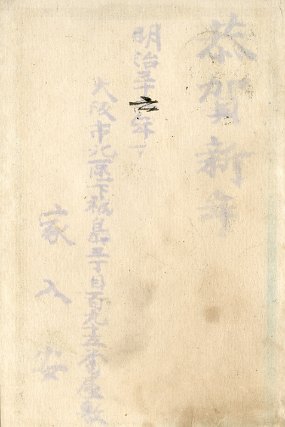 恭賀新年
明治三十
大阪市北区下福島三丁目百九十五番屋敷
家入安